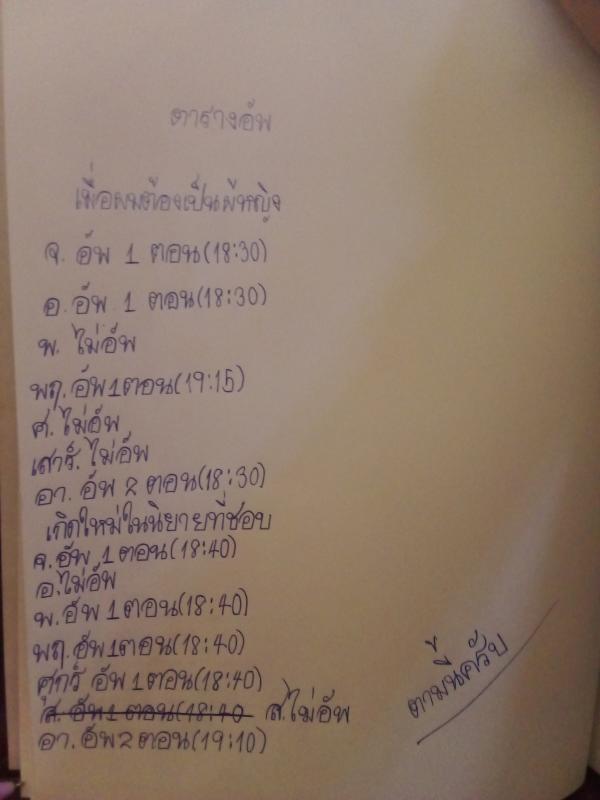 ตารางอัพ
เมื่อผมต้องเป็นผีหญิง
จ. อัพ 1 ตอน(18:30)
อ. อัพ 1 ตอน(18:30)
พ. ไม่อัพ
พฤ. อัพ 1 ตอน(19:15)
ศ. ไม่อัพ
เสาร์. ไม่อัพ
อา. อัพ 2 ตอน(18:30)
เกิดใหม่ในนิยายที่ชอบ
จ. อัพ 1 ตอน(18:40)
อ. ไม่อัพ
พ. อัพ 1 ตอน(18:40)
พฤ. อัพ 1 ตอน(18:40)
ศุกร์ อัพ 1 ตอน(18:40)
ส. อัพ 1 ตอน(18:40 ส. ไม่อัพ
อา. อัพ 2 ตอน(19:10)
ตามนี้ครับ